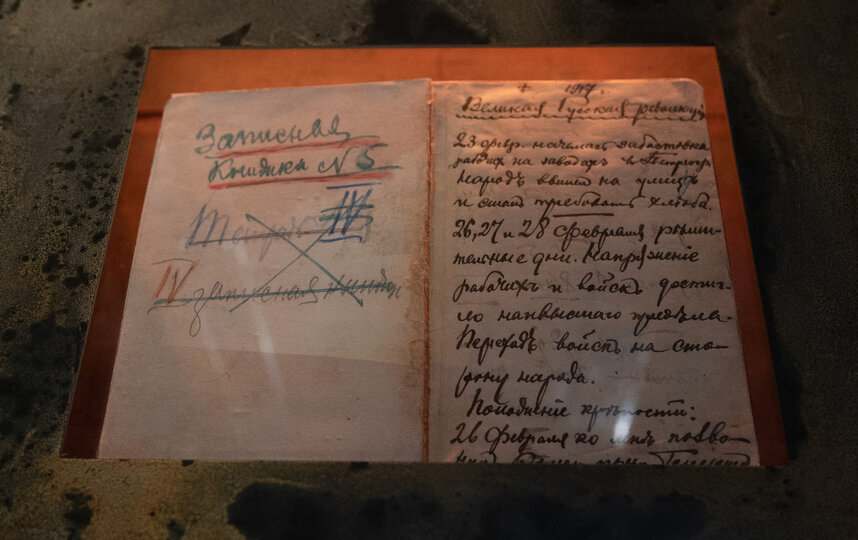 Записная
Книжка N 5
Тетрадь IV
IV записная книжка
1917 г.
Великая Русская революція
23 февр. началась забастовка
рабочих на заводахъ в Петрогр.
Народъ вышелъ на улицу
и сталъ требовать хлѣба.
26, 27 и 28 февраля рѣши-
тельные дни. Напряженіе
рабочихъ и войскъ достиг-
ло наивысшаго предѣла.
Переходъ войскъ на сто-
рону народа.
Положение крѣпости:
26 февраля ко мнѣ позво-